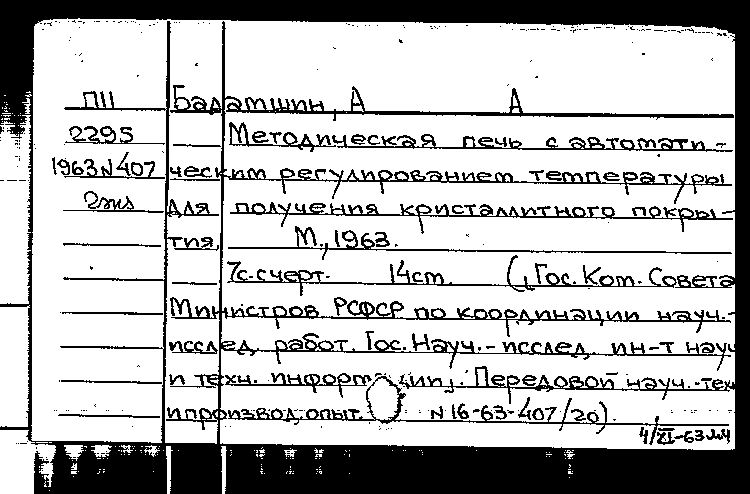 П11 Бадамшин, А А
2295 Методическая печь с автомати-
1963 N 407 ческим регулированием температуры
2экз для получения кристаллитного покры-
тия, М., 1963.
7с. с черт. 14 cm. (Гос. Ком. Совета
Министров РСФСР по координации науч.-
исслед. работ. Гос. Науч.-исслед. ин-т науч
и техн. информации. Передовой науч.-техн
и производ. опыт. N 16-63-407/20).
4/XI-63